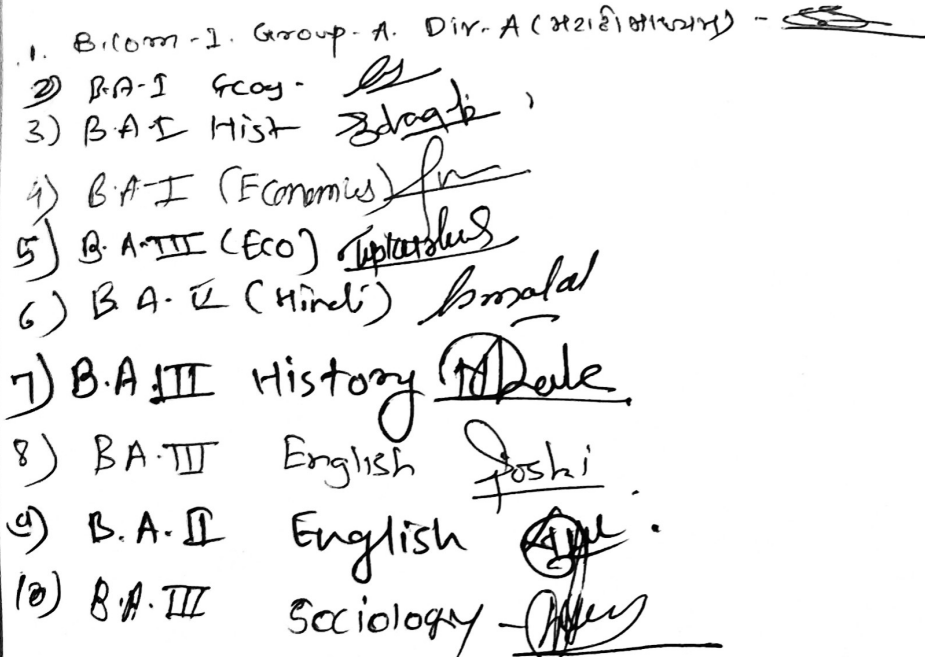 1. B.Com-I. Group-A. Div-A (मराठी माध्यम) -
2) B.A-I Geog-
3) B.A I Hist
4) B.A-I (Economics)
5) B.A-III (Eco)
6) B.A-II (Hindi)
7) B.A III History
8) BA-III English Joshi
9) B.A.II English
10) B.A.III Sociology -